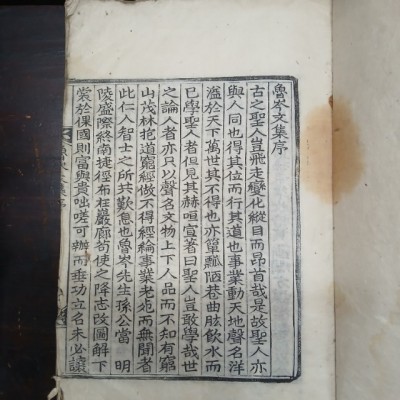 魯岑文集序
古之聖人豈飛走變化縱目而昂首哉是故聖人亦
與人同也得其位而行其道也事業動天地聲名洋
溢於天下萬世其不得也亦簞瓢陋巷曲肱飮水而
已學聖人者但見其赫咺宣著曰聖人豈敢學哉世
之論人者亦只以聲名文物上下人品而不知有窮
山茂林抱道窮經做不得經綸事業老死而無聞者
此仁人智士之所共歎息也魯岑先生孫公當 明
陵盛際終南捷徑布在嚴廊苟使之降志改圖解下
裳於倮國則富與貴咄嗟可辦而垂功立名未必遠